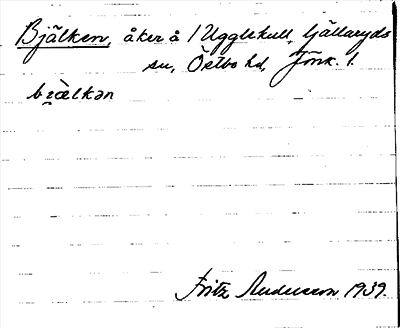 Bjälken, åker å 1 Ugglekull, Gällaryds
sn, Östbo hd, Jönk. l.
Fritz Andersson 1939.